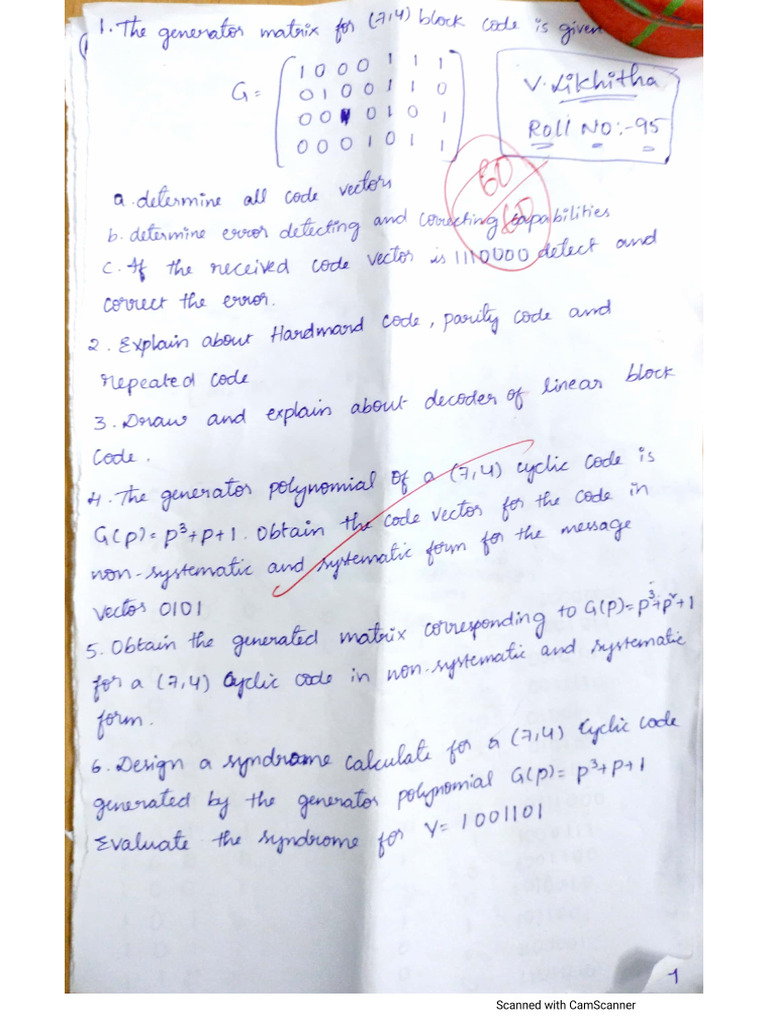 1. The generator matrix for (7,4) block code is given
G= 1 0 0 0 1 1 1
0 1 0 0 1 1 0
0 0 1 0 1 0 1
0 0 0 1 0 1 1
V. Likhitha
Roll No:-95
60
60
a. determine all code vectors
b. determine error detecting and correcting capabilities
c. If the received code vector is 1110000 detect and
correct the error.
2. Explain about Hardmard code, parity code and
repeated code
3. Draw and explain about decoder of linear block
code.
4. The generator polynomial of a (7,4) cyclic code is
G(p)= p³+p+1. Obtain the code vector for the code in
non-systematic and systematic form for the message
vector 0101
5. Obtain the generated matrix corresponding to G(p)= p³+p²+1
for a (7,4) cyclic code in non-systematic and systematic
form.
6. Design a syndrome calculate for a (7,4) cyclic code
generated by the generator polynomial G(p)= p³+p+1
Evaluate the syndrome for Y= 1001101
1
Scanned with CamScanner